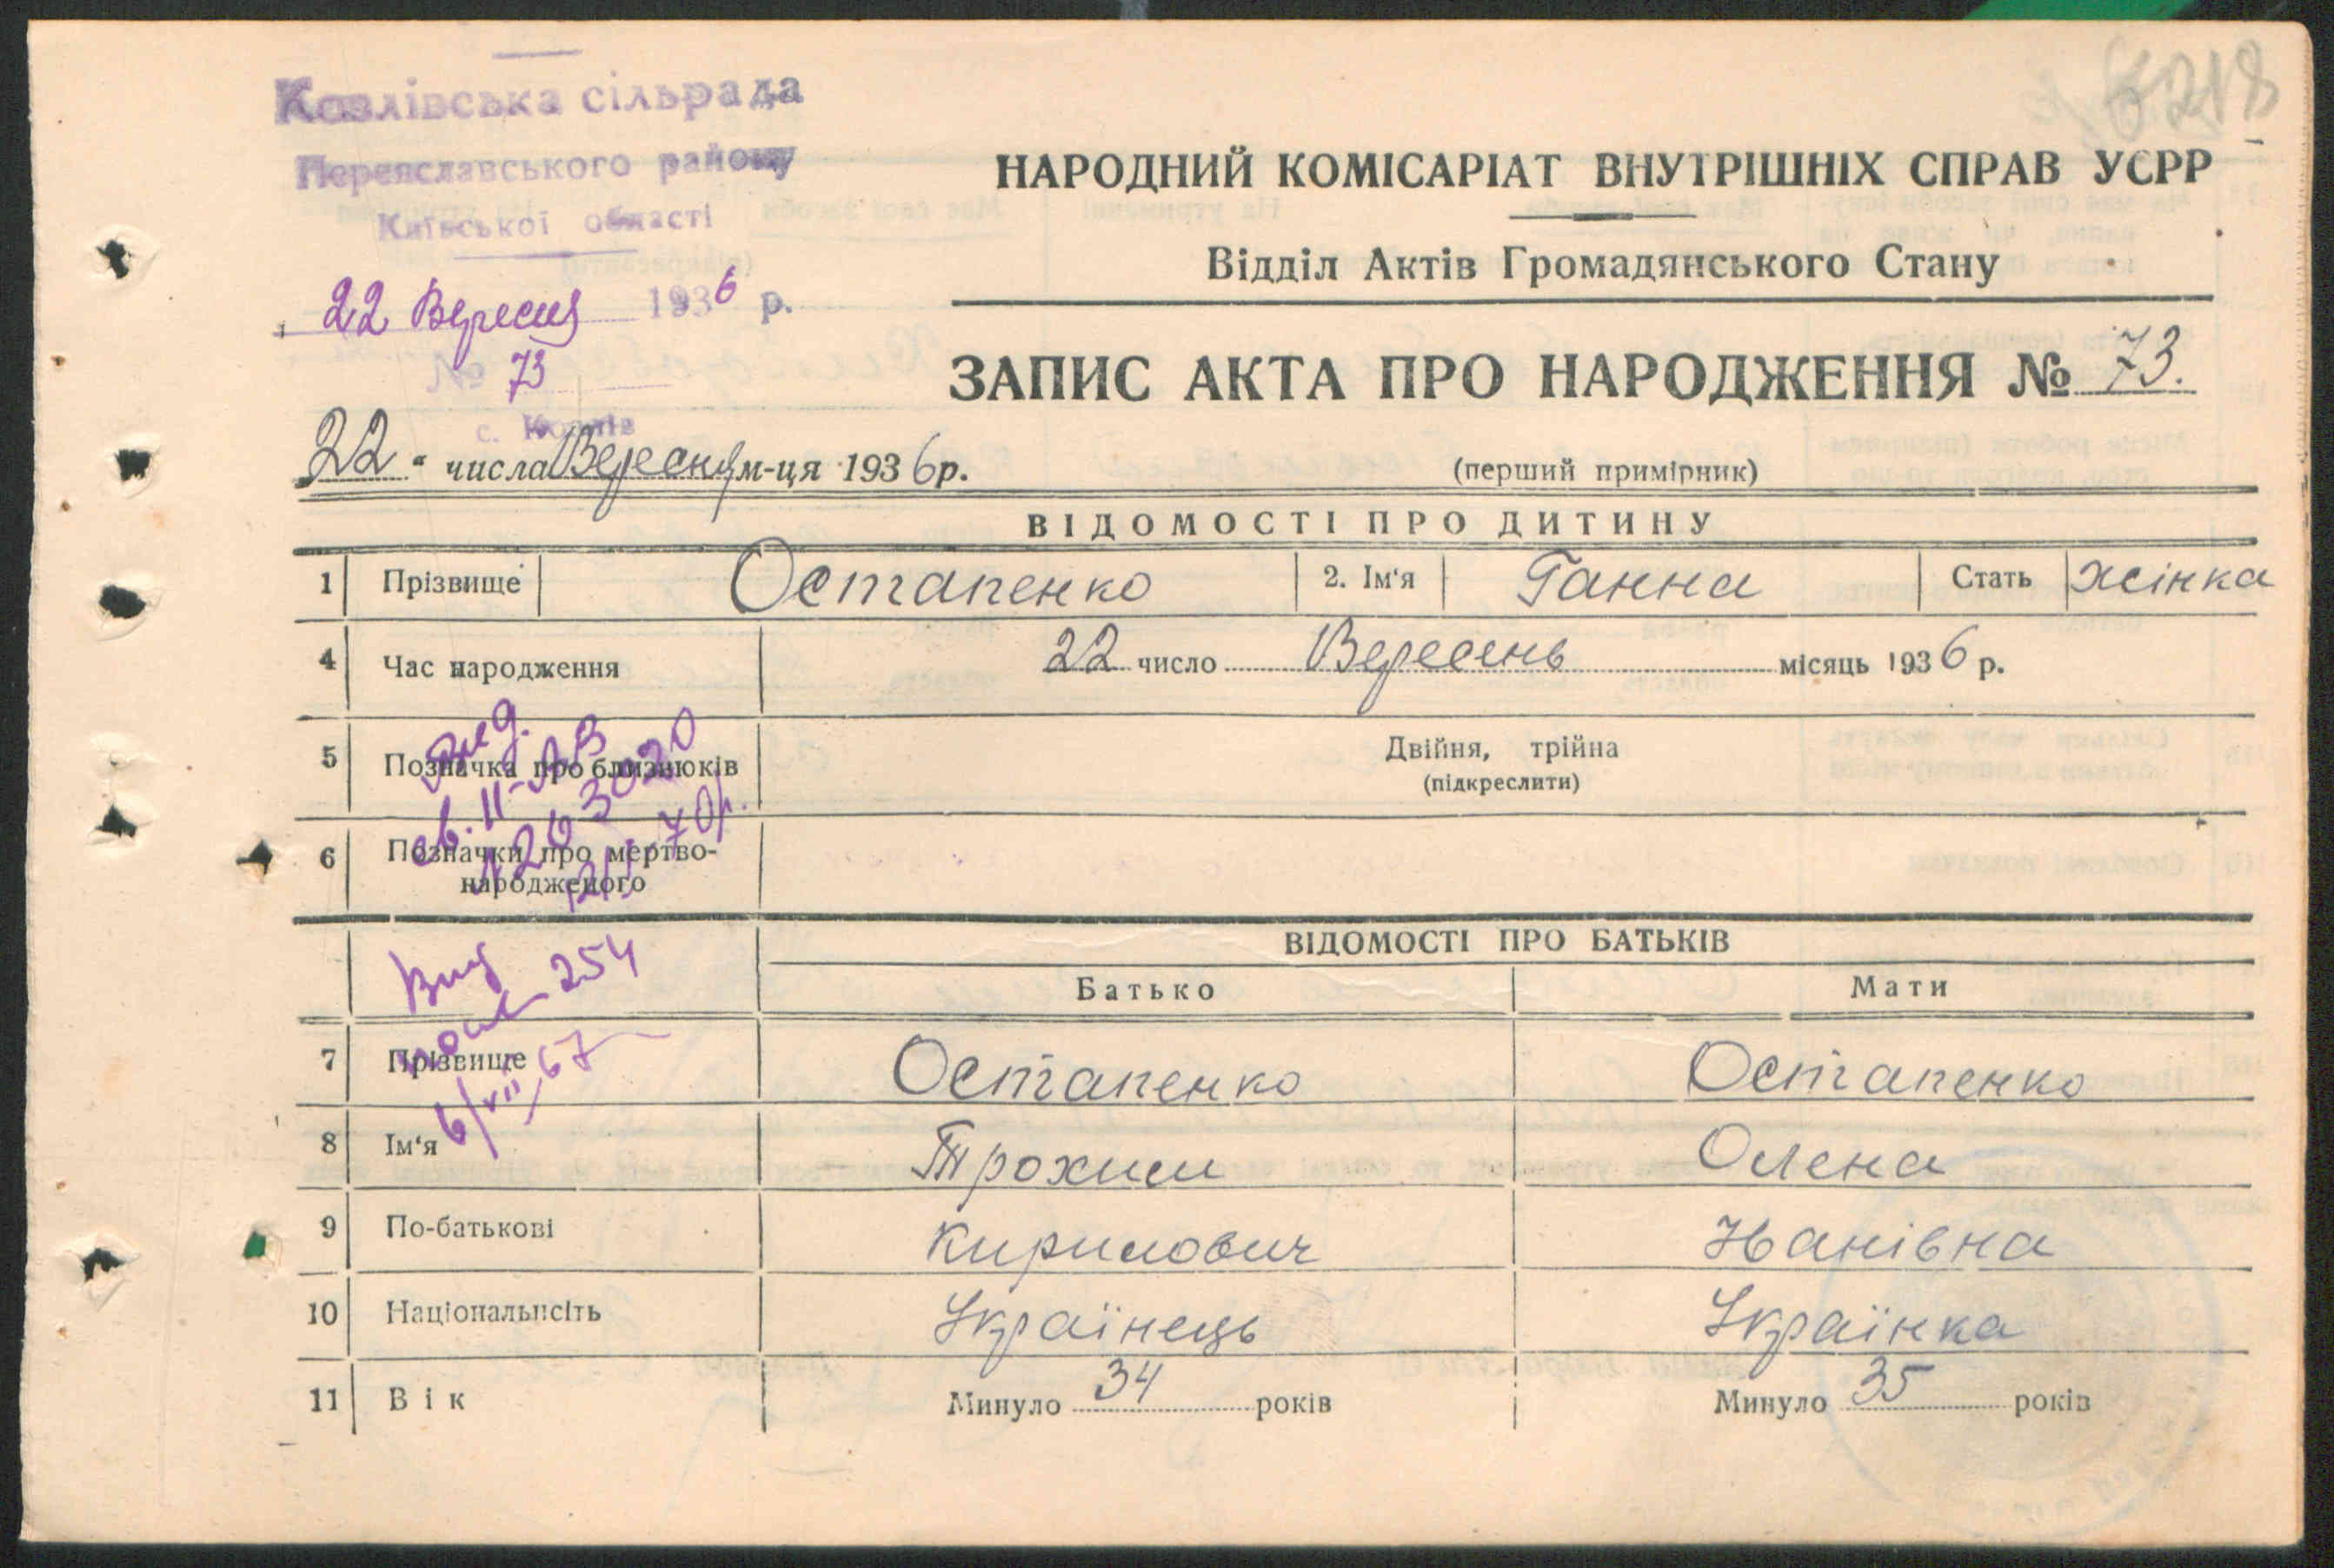 6218
Козлівська сільрада
Переяславського району
Київської області
22 Вересня 1936 р.
№ 73
с. Козлів
НАРОДНИЙ КОМІСАРІАТ ВНУТРІШНІХ СПРАВ УСРР
Відділ Актів Громадянського Стану
ЗАПИС АКТА ПРО НАРОДЖЕННЯ № 73.
22 " числа Вересня м-ця 1936 р.
(перший примірник)
ВІДОМОСТІ ПРО ДИТИНУ
1 Прізвище Остапенко 2. Ім'я Ганна Стать жінка
4 Час народження 22 число Вересень місяць 1936 р.
5 Позначка про близнюків Двійня, трійна
(підкреслити)
6 Позначки про мертво-
народженого
св. II-АВ
203020
70р.
ВІДОМОСТІ ПРО БАТЬКІВ
Батько Мати
254
6/VII 67
7 Прізвище Остапенко Остапенко
8 Ім'я Трохим Олена
9 По-батькові Кирилович Іванівна
10 Національнсіть Українець Українка
11 Вік Минуло 34 років Минуло 35 років